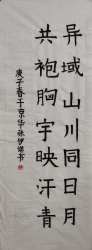 异域山川同日月
共袍胸宇映汗青
庚子春于京华